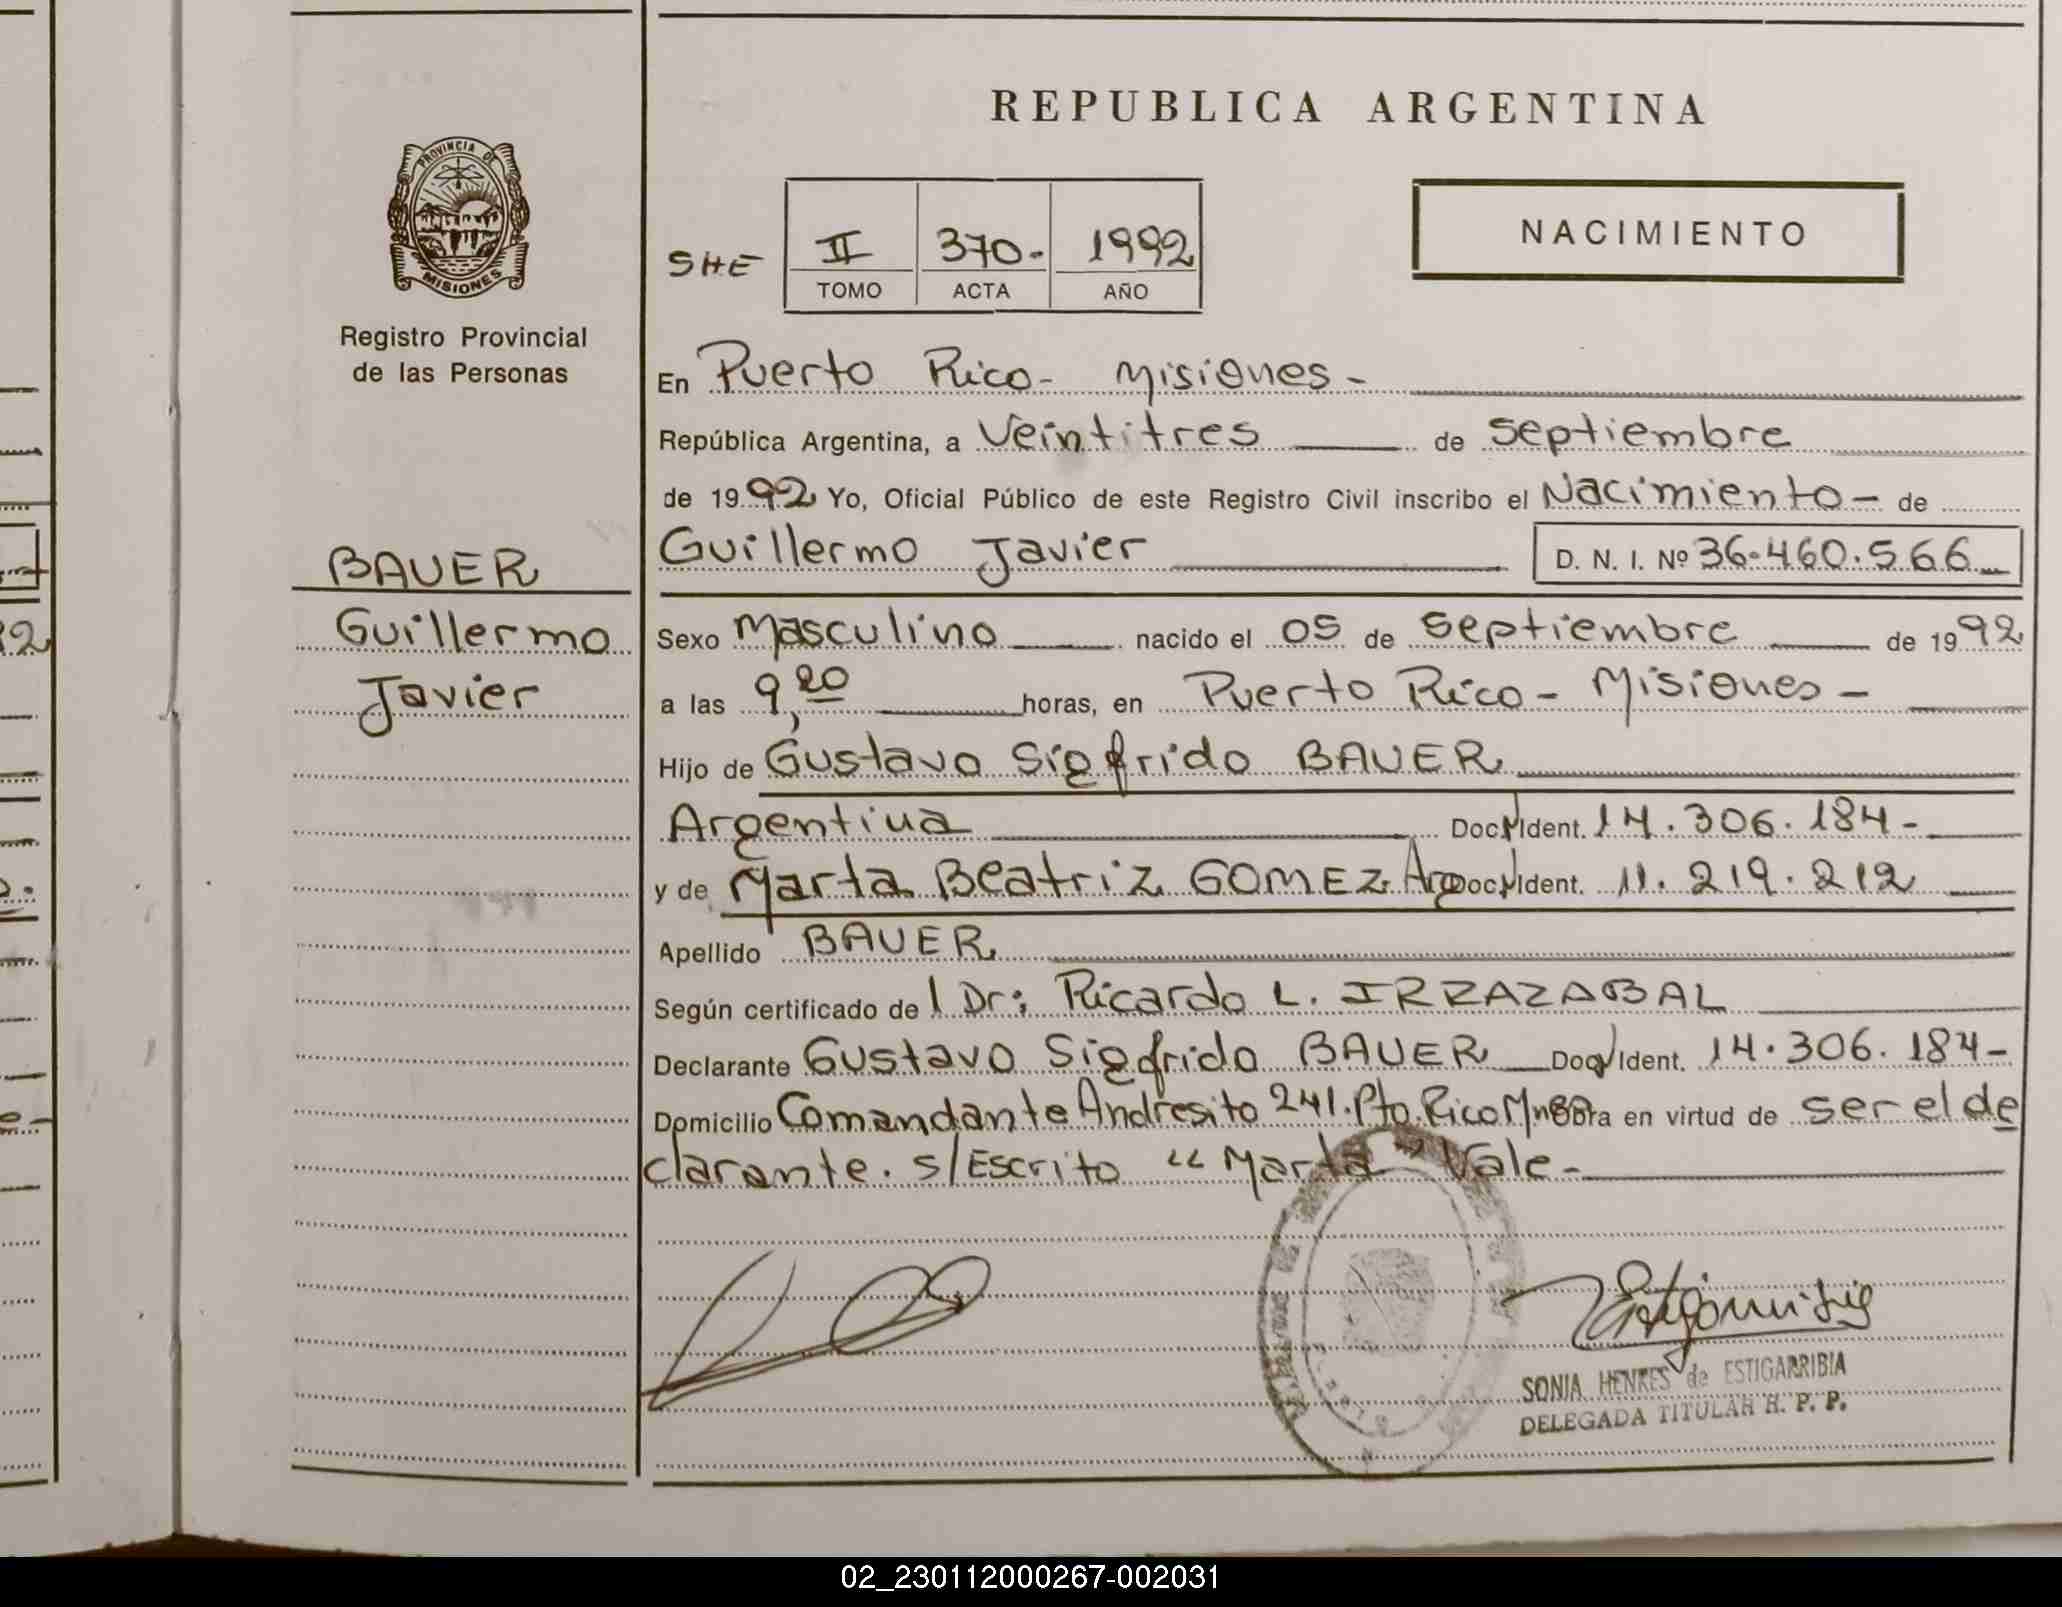 REPUBLICA ARGENTINA
PROVINCIA DE
MISIONES
Registro Provincial
de las Personas
SHE II 370- 1992
TOMO ACTA AÑO
NACIMIENTO
En Puerto Rico- Misiones-
República Argentina, a Veintitres de septiembre
de 1992 Yo, Oficial Público de este Registro Civil inscribo el Nacimiento- de
Guillermo Javier D. N. I. Nº 36.460.566
BAUER
Guillermo
Javier
Sexo Masculino nacido el 05 de septiembre de 1992
a las 9,20 horas, en Puerto Rico- Misiones-
Hijo de Gustavo Sigfrido BAUER
Argentina Doc. Ident. 14.306.184-
y de Marta Beatriz GOMEZ Arg Doc. Ident. 11.219.212
Apellido BAUER
Según certificado del Dr: Ricardo L. IRRAZABAL
Declarante Gustavo Sigfrido BAUER Doc. Ident. 14.306.184-
Domicilio Comandante Andresito 241. Pto. Rico Mnes Obra en virtud de ser el de
clarante. s/Escrito "Marta" Vale-
SONIA HENRES de ESTIGARRIBIA
DELEGADA TITULAR R. P. P.
02_230112000267-002031